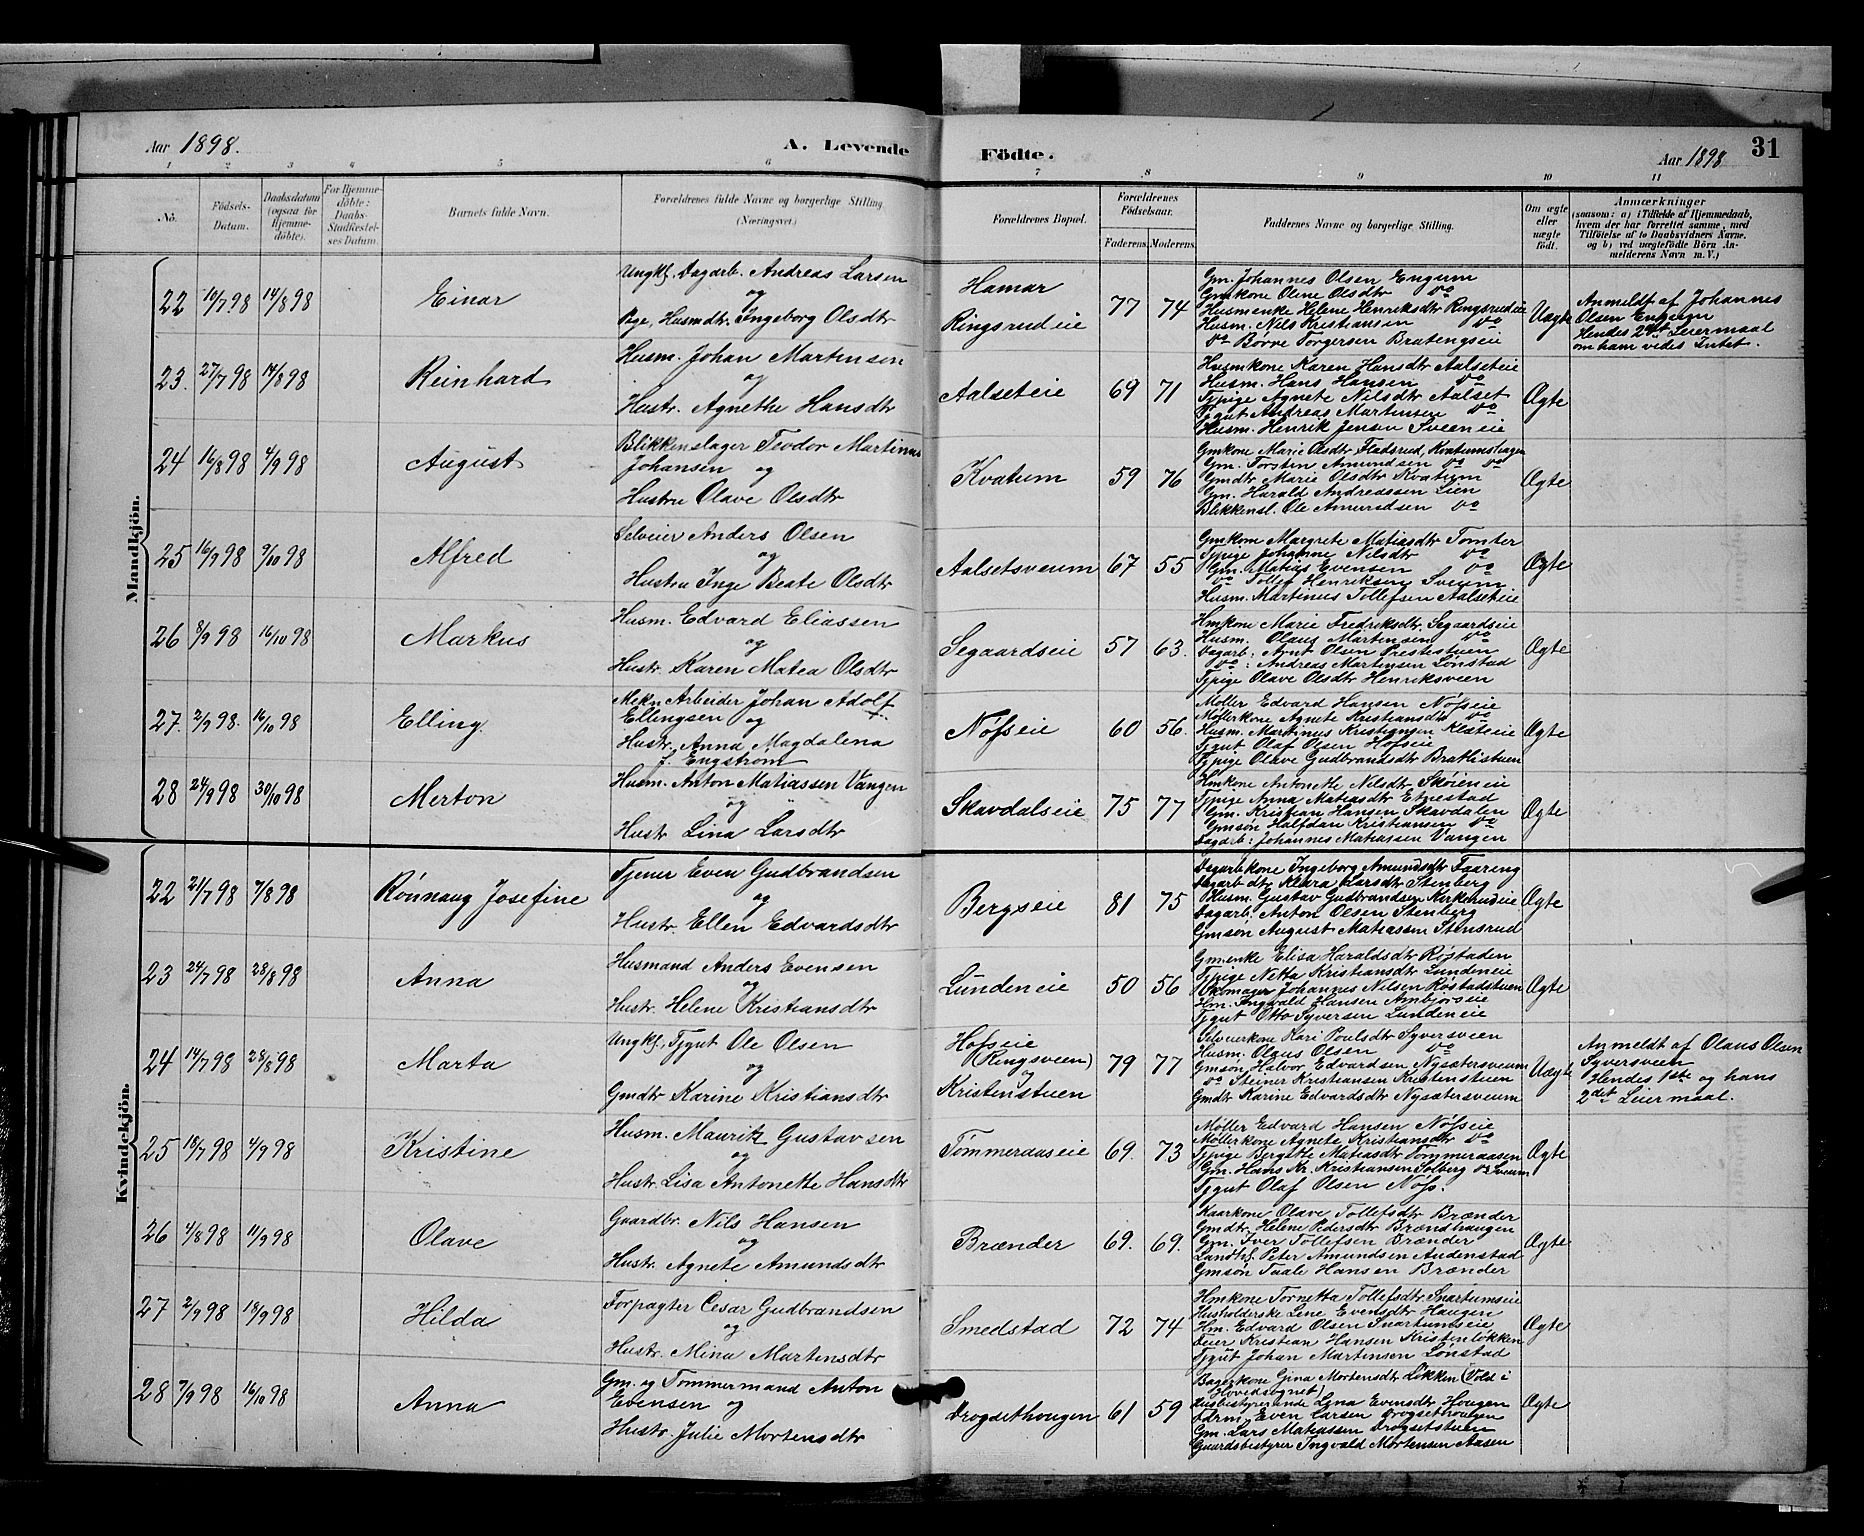 Aar 1898.
A. Levende
Födte.
Aar 1898
31
1 2 3 4 5 6 7 8 9 10 11
No.
Födsels-Datum.
Daabsdatum (ogsaa for Hjemme-döbte).
For Hjemme-döbte: Daabs-Stadfæstel-ses Datum.
Barnets fulde Navn.
Forældrenes fulde Navne og borgerlige Stilling.
(Næringsvei.)
Forældrenes Bopæl.
Forældrenes Födselsaar.
Faderens. Moderens.
Faddernes Navne og borgerlige Stilling.
Om ægte eller uægte födt.
Anmærkninger
(saasom: a) i Tilfælde af Hjemmedaab,
hvem der har forrettet samme, med
Tilföielse af to Daabsvidners Navne,
og b) ved uægtefödte Börn An-
melderens Navn m. V.)
Mandkjön.
22 16/7 98 14/8 98
Einar
Ungkf. Dagarb. Andreas Larsen
og
Pige, Husmdtr. Ingeborg Olsdtr
Hamar
Ringsrudeie
77 74
Gm. Johannes Olsen Engum
Gmkone Oline Olsdtr do
Husmenke Helene Henriksdtr Ringsrudeie
Husm. Nils Kristiansen do
do Börre Torgersen Bratengseie
Uægte
Anmeldt af Johannes
Olsen Engum
Hendes 2det Leiermaal
om ham vides Intet.
23. 27/7 98 14/8 98
Reinhard
Husm. Johan Martinsen
og
Hustr. Agnethe Hansdtr
Aalseteie
69 71
Husmkone Karen Hansdtr Aalseteie
Husm. Hans Hansen do
Tjpige Agnete Nilsdtr Aalset
Tjgut Andreas Martinsen do
Husm. Henrik Jensen Sveeneie
Ægte
24 16/8 98 4/9 98
August
Blikkenslager Teodor Martinus
Johansen og
Hustru Olave Olsdtr
Kvatum
59 76
Gmkone Marie Olsdtr Fladsrud, Kvatumshagen
Gm. Torstin Amundsen do do
Gmdtr Marie Olsdtr Kvatum
Gm. Harald Andreassen Lien
Blikkensl. Ole Amundsen do
Ægte
25 16/9 98 9/10 98
Alfred
Selveier Anders Olsen
og
Hustru Inge Beate Olsdtr
Aalsetsveum
67 55
Gmkone Margrete Matiasdtr Tomter
Tjpige Johanne Nilsdtr do
Gm. Matius Evensen do
do Tollef Henriksen Sveum
Husm. Martinus Tollefsen Aalseteie
Ægte
26 8/9 98 16/10 98
Markus
Husm. Edvard Eliassen
og
Hustr. Karen Matea Olsdtr
Segaardseie
57 63.
Hmkone Marie Fredriksdtr. Segaardseie
Husm. Olaus Martinsen do
Dagarb: Amt Olsen Prestestuen
do: Andreas Martinsen Lønstad
Tjpige Olave Olsdtr Henriksveen
Ægte
27. 2/9 98. 16/10 98
Elling.
Mekn Arbeider Johan Adolf
Ellingsen og
Hustr. Anna Magdalena
f. Engström
Nøfseie
60 56.
Møller Edvard Hansen Nøfseie
Møllerkone Agnete Kristiansdtr do
Husm. Martinus Kristiansen Klateie
Tjgut Olaf Olsen Hofseie
Tjpige Olave Gudbrandsdtr Bratlistuen
Ægte
28 24/9 98 30/10 98
Merton
Husm. Anton Matiassen Vangen
og
Hustr Lina Larsdtr
Skavdalseie
75 77
Hmkone Antonette Nilsdtr Skøieneie
Tjpige Anna Matiasdtr Etnestad
Gm. Kristian Hansen Skavdalen
Gmsøn Halfdan Kristiansen do
Dagarb: Johannes Matiassen Vangen
Ægte
Kvindekjön.
22 21/7 98 7/8 98
Rönnaug Josefine
Tjener Even Gudbrandsen
og
Hustr. Ellen Edvardsdtr
Bergseie
81 75
Dagarbkone Ingeborg Amundsdtr Faaring
Dagarb dtr Klara Larsdtr Stenberg
Husm. Gustav Gudbrandsen Kirkerudeie
Dagarb. Anton Olsen Stenberg
Gmsøn August Matiassen Stensrud
Ægte
23 24/7 98 28/8 98
Anna
Husmand Anders Evensen
og
Hustr. Helene Kristiansdtr
Lundeneie
50 56
Gmenke Elisa Haraldsdtr Røstaden
Tjpige Netta Kristiansdtr Lundeneie
Skomager Johannes Nilsen Røstadstuen
Hm. Ingvald Hansen Ambjörseie
Tjgut Otto Syversen Lundeneie
Ægte
24 14/7 98 28/8 98
Marta
Ungkf, Tjgut Ole Olsen
og
Gmdtr Karine Kristiansdtr
Hofseie
(Ringsveen)
og
Kristenstuen
79 77
Selveierkone Kari Poulsdtr Syversveen
Husm. Olaus Olsen do
Gmsøn Halvor Edvardsen Nysætersveum
do Steiner Kristiansen Kristenstuen
Gmdtr Karine Edvardsdtr Nysætersveum
Uægte
Anmeldt af Olaus Olsen
Syversveen
Hendes 1ste og hans
2det Leiermaal.
25 18/7 98 4/9 98
Kristine
Husm. Mauritz Gustavsen
og
Hustr. Lisa Antonette Hansdtr
Tømmeraaseie
69. 73
Møller Edvard Hansen Nøfseie
Møllerkone Agnete Kristiansdtr do
Tjpige Bergitte Matiasdtr Tømmeraasen
Gm. Hans Kr. Kristiansen Solberg do Sveum
Tjgut Olaf Olsen Nøfs.
Ægte
26 4/8 98 11/9 98
Olave
Gaardbr. Nils Hansen
og
Hustr. Agnete Amundsdtr
Brænder
69. 69.
Kaarkone Olave Tollefsdtr Brænder
Gmdtr. Helene Pedersdtr Brændhaugen
Gm. Iver Tollefsen Brænder
Landhl. Peter Amundsen Audenstad
Gmsøn Taale Hansen Brænder
Ægte
27 2/9 98 18/9 98
Hilda
Forpagter Cesar Gudbrandsen
og
Hustr. Mina Martinsdtr
Smedstad
72 74
Hmkone Tornetta Tollefsdtr Snartumseie
Husholderske Lene Evensdtr Haugens
Hm. Edvard Olsen Snartumseie
Feier Kristian Hansen Kristenløkken
Tjgut Johan Martinsen Lønstad
Ægte
28 7/9 98 16/10 98
Anna
Gm. og Tømmermand Anton
Evensen og
Hustr. Julie Mortensdtr
Drogsethougen
61 59
Bagerkone Gina Mortensdtr Løkken (Told i
Hovedsognet)
Husbestyrerinde Lena Evensdtr Hougen
Fdrm. Even Larsen Drogsethougen
Gm. Lars Matiassen Drogsetstuen
Gaardsbestyrer Ingvald Mortensen Aasen
Ægte